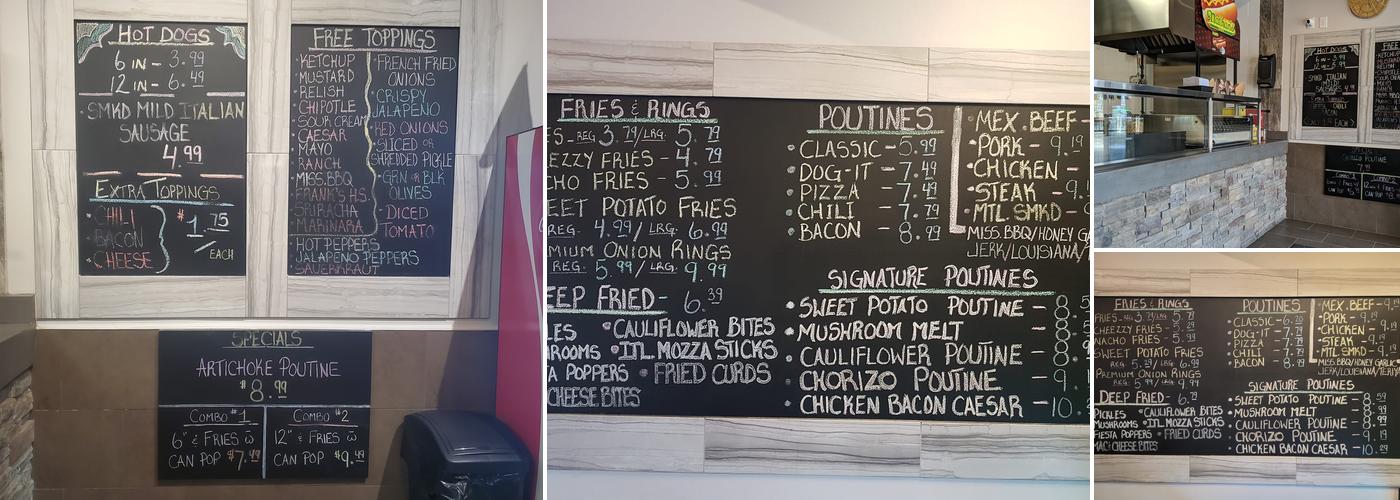 HOT DOGS
6 IN - 3.99
12 IN - 6.49
SMKD MILD ITALIAN
SAUSAGE
4.99
EXTRA TOPPINGS
CHILI
BACON
CHEESE
$1.75
EACH
FREE TOPPINGS
KETCHUP
MUSTARD
RELISH
CHIPOTLE
SOUR CREAM
CAESAR
MAYO
RANCH
MISS.BBQ
FRANK'S H.S.
SRIRACHA
MARINARA
HOT PEPPERS
JALAPENO PEPPERS
SAUERKRAUT
FRENCH FRIED
ONIONS
CRISPY
JALAPENO
RED ONIONS
SLICED OR
SHREDDED PICKLE
GRN OR BLK
OLIVES
DICED
TOMATO
SPECIALS
ARTICHOKE POUTINE
$8.99
COMBO #1
6" & FRIES W
CAN POP $7.49
COMBO #2
12" & FRIES W
CAN POP $9.49
FRIES & RINGS
REG 3.79/LRG. 5.79
EEZZY FRIES - 4.79
CHO FRIES - 5.99
EET POTATO FRIES
REG. 4.99/LRG. 6.99
MIUM ONION RINGS
REG. 5.99/LRG. 9.99
EEP FRIED - 6.39
LES • CAULIFLOWER BITES
ROOMS • ITL MOZZA STICKS
TA POPPERS • FRIED CURDS
CHEESE BITES
POUTINES
CLASSIC - 5.99
DOG-IT - 7.49
PIZZA - 7.49
CHILI - 7.79
BACON - 8.99
MEX. BEEF -
PORK - 9.19
CHICKEN -
STEAK - 9.
MTL SMKD -
MISS. BBQ/HONEY GA
JERK/LOUISIANA/
SIGNATURE POUTINES
SWEET POTATO POUTINE - 8.5
MUSHROOM MELT - 8.
CAULIFLOWER POUTINE - 8.
CHORIZO POUTINE - 9.
CHICKEN BACON CAESAR - 10.
HOT DOGS
6 IN - 3.99
SMKD ITALIAN
MILD
SAUSAGE
FRIES & RINGS
FRIES - REG 3.79/LRG. 5.79
CHEEZZY FRIES -
NACHO FRIES -
SWEET POTATO FRIES
PREMIUM ONION RINGS
DEEP FRIED - 6.79
PICKLES • CAULIFLOWER BITES
MUSHROOMS • ITL MOZZA STICKS
FIESTA POPPERS • FRIED CURDS
MAC & CHEESE BITES
POUTINES
CLASSIC -
DOG-IT -
PIZZA -
CHILI -
BACON - 8.99
MEX. BEEF -
PORK - 9.19
CHICKEN -
STEAK - 9.19
MTL SMKD - 9.19
MISS BBQ/HONEY GARLIC
JERK/LOUISIANA/TERIYA
SIGNATURE POUTINES
SWEET POTATO POUTINE - 8.59
MUSHROOM MELT - 8.99
CAULIFLOWER POUTINE - 8.99
CHORIZO POUTINE - 9.19
CHICKEN BACON CAESAR - 10.29